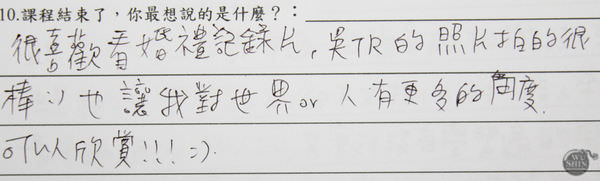 10.課程結束了，你最想說的是什麼？：
很喜歡看婚禮記錄片，吳TR的照片拍的很
棒：）也讓我對世界or人有更多的角度.
可以欣賞!!! =).